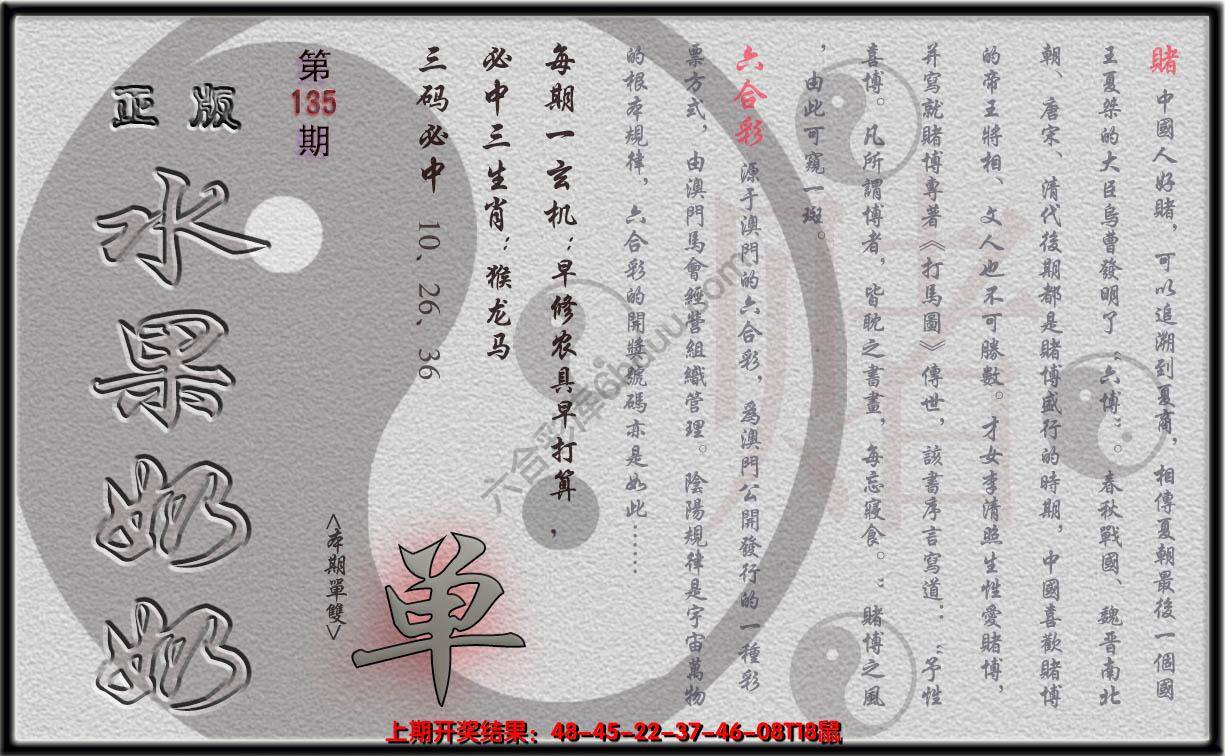 賭 中國人好賭，可以追溯到夏商，相傳夏朝最後一個國
王夏桀的大臣烏曹發明了“六博”。春秋戰國、魏晋南北
朝、唐宋、清代後期都是賭博盛行的時期，中國喜歡賭博
的帝王將相、文人也不可勝數。才女李清照生性愛賭博，
并寫就賭博專著《打馬圖》傳世，該書序言寫道：“予性
喜博。凡所謂博者，皆耽之書畫，每忘寢食。”賭博之風
，由此可窺一斑。
六合彩 源于澳門的六合彩，爲澳門公開發行的一種彩
票方式，由澳門馬會經營組織管理。陰陽規律是宇宙萬物
的根本規律，六合彩的開獎號碼亦是如此……
每期一玄机：早修农具早打算，
必中三生肖：猴龙马
三码必中 10、26、36
第
135
期
<本期單雙>
单
正版
水果奶奶
賭
六合彩库6buuu.com
上期开奖结果：48-45-22-37-46-08T18鼠